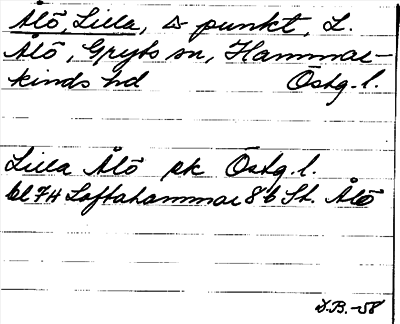 Ålö, Lilla, △ punkt, L.
Ålö, Gryts sn, Hammar-
kinds hd Östg. l.
Lilla Ålö ek Östg. l.
bl 74 Loftahammar 8 b St. Ålö
D.B.-58